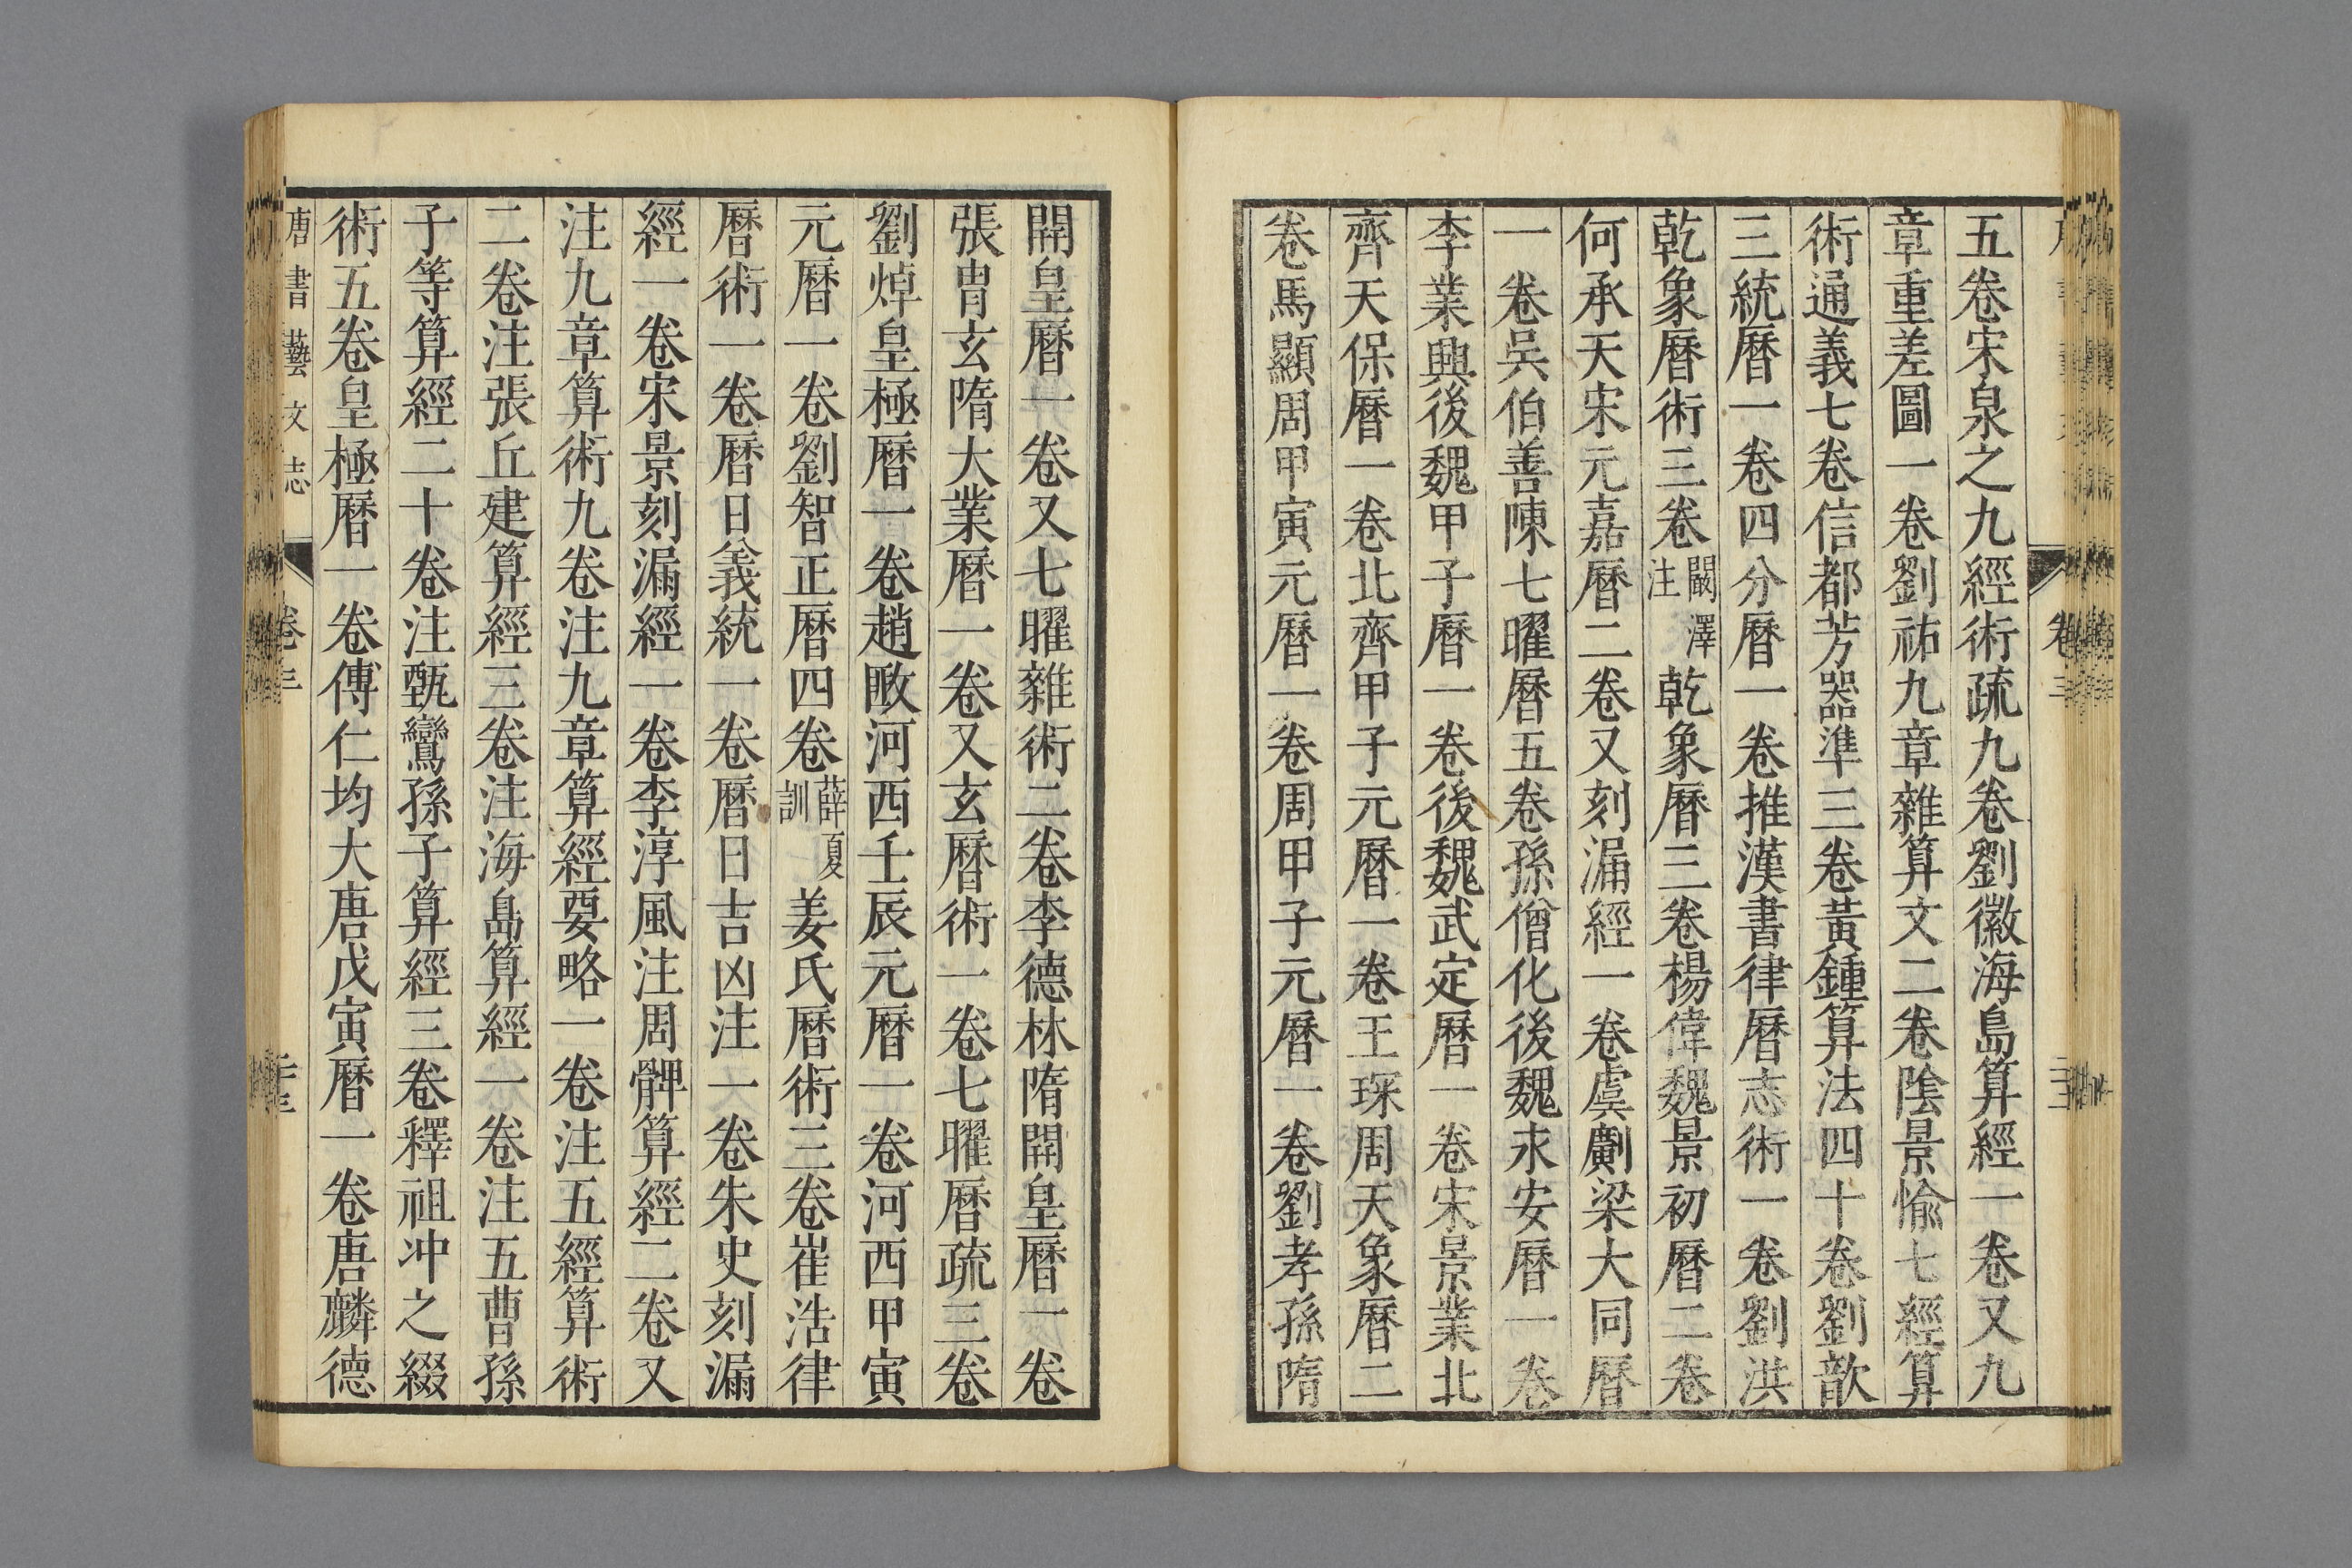 五卷宋泉之九經術疏九卷劉徽海島算經一卷又九
章重差圖一卷劉祐九章雜算文二卷陰景愉七經算
術通義七卷信都芳器準三卷黃鍾算法四十卷劉歆
三統曆一卷四分曆一卷推漢書律曆志術一卷劉洪
乾象曆術三卷闞澤注乾象曆三卷楊偉魏景初曆二卷
何承天宋元嘉曆二卷又刻漏經一卷虞劇梁大同曆
一卷吳伯善陳七曜曆五卷孫僧化後魏永安曆一卷
李業興後魏甲子曆一卷後魏武定曆一卷宋景業北
齊天保曆一卷北齊甲子元曆一卷王琛周天象曆二
卷馬顯周甲寅元曆一卷周甲子元曆一卷劉孝孫隋
開皇曆一卷又七曜雜術二卷李德林隋開皇曆一卷
張胄玄隋大業曆一卷又玄曆術一卷七曜曆疏三卷
劉焯皇極曆一卷趙𢾺河西壬辰元曆一卷河西甲寅
元曆一卷劉智正曆四卷薛夏訓姜氏曆術三卷崔浩律
曆術一卷曆日義統一卷曆日吉凶注一卷朱史刻漏
經一卷宋景刻漏經一卷李淳風注周髀算經二卷又
注九章算術九卷注九章算經要略一卷注五經算術
二卷注張丘建算經三卷注海島算經一卷注五曹孫
子等算經二十卷注甄鸞孫子算經三卷釋祖冲之綴
術五卷皇極曆一卷傅仁均大唐戊寅曆一卷唐麟德
唐書藝文志
卷三